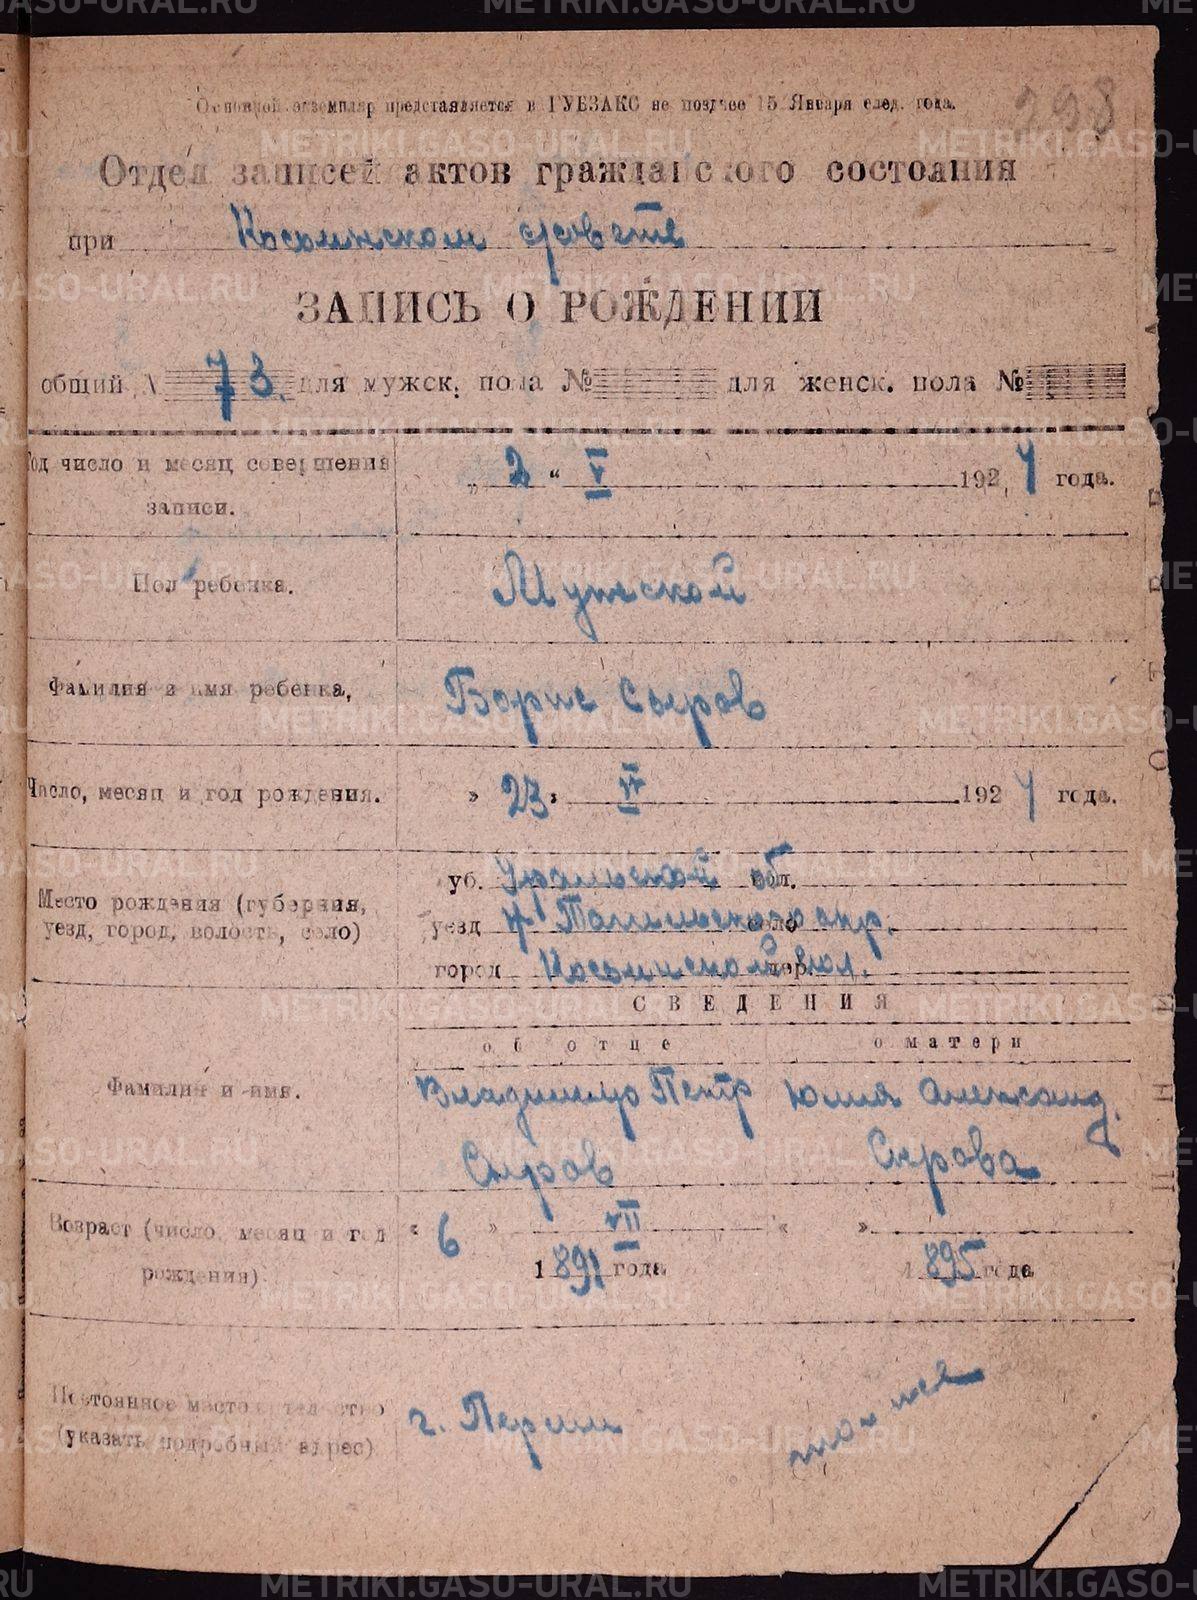 298
Основной экземпляр представляется в ГУБЗАКС не позднее 15 Января след. года.
Отдел записей актов гражданского состояния
при Косьинском с/совете
ЗАПИСЬ О РОЖДЕНИИ
общий № 73. для мужск. пола № для женск. пола №
Год число и месяц совершения записи. „ 2 “ V 1924 года.
Пол ребенка. Мужской
Фамилия и имя ребенка, Борис Сыров
Число, месяц и год рождения. » 23 » 1924 года.
Место рождения (губерния, уезд, город, волость, село)
губ. Уральской обл.
уезд Н Тагильского окр. село
город Косьинской вол. дер.
СВЕДЕНИЯ
об отце о матери
Фамилия и имя. Владимир Петр Юлия Александ.
Сыров Сырова
Возраст (число, месяц и год рождения) « 6 » VII « »
1891 года 1895 года
Постоянное местожительство (указать подробный адрес) г. Перми
METRIKI.GASO-URAL.RU